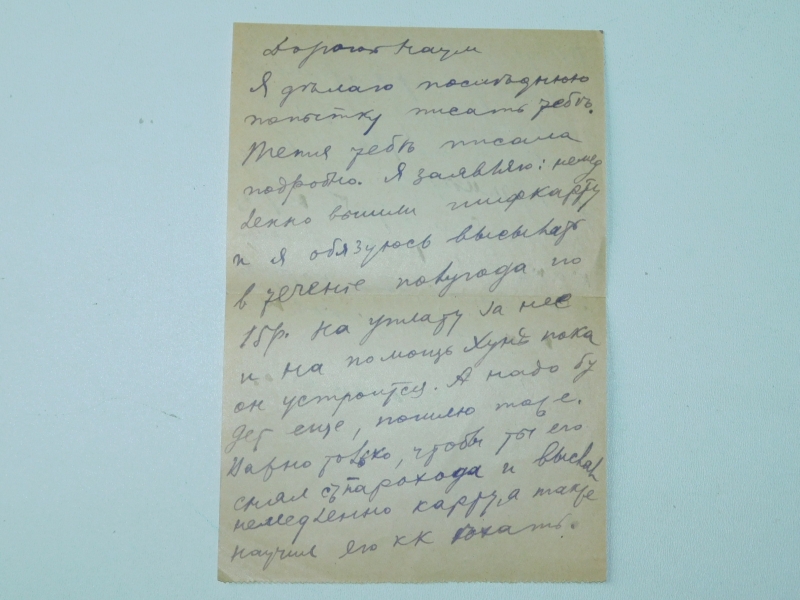 Дорогой Наум
Я дѣлаю послѣднюю
попытку писать тебѣ.
Женя тебѣ писала
подробно. Я заявляю: немед
ленно вышли шифкарту
и я обязуюсь высывать
в течение полугода по
15р. на уплату за нее
и на помощь Хуне пока
он устроится. А надо бу
дет еще, пошлю тоже.
только, чтобы ты его
снял съ парохода и выслал
немедленно карту, а также
научил его как ехать.